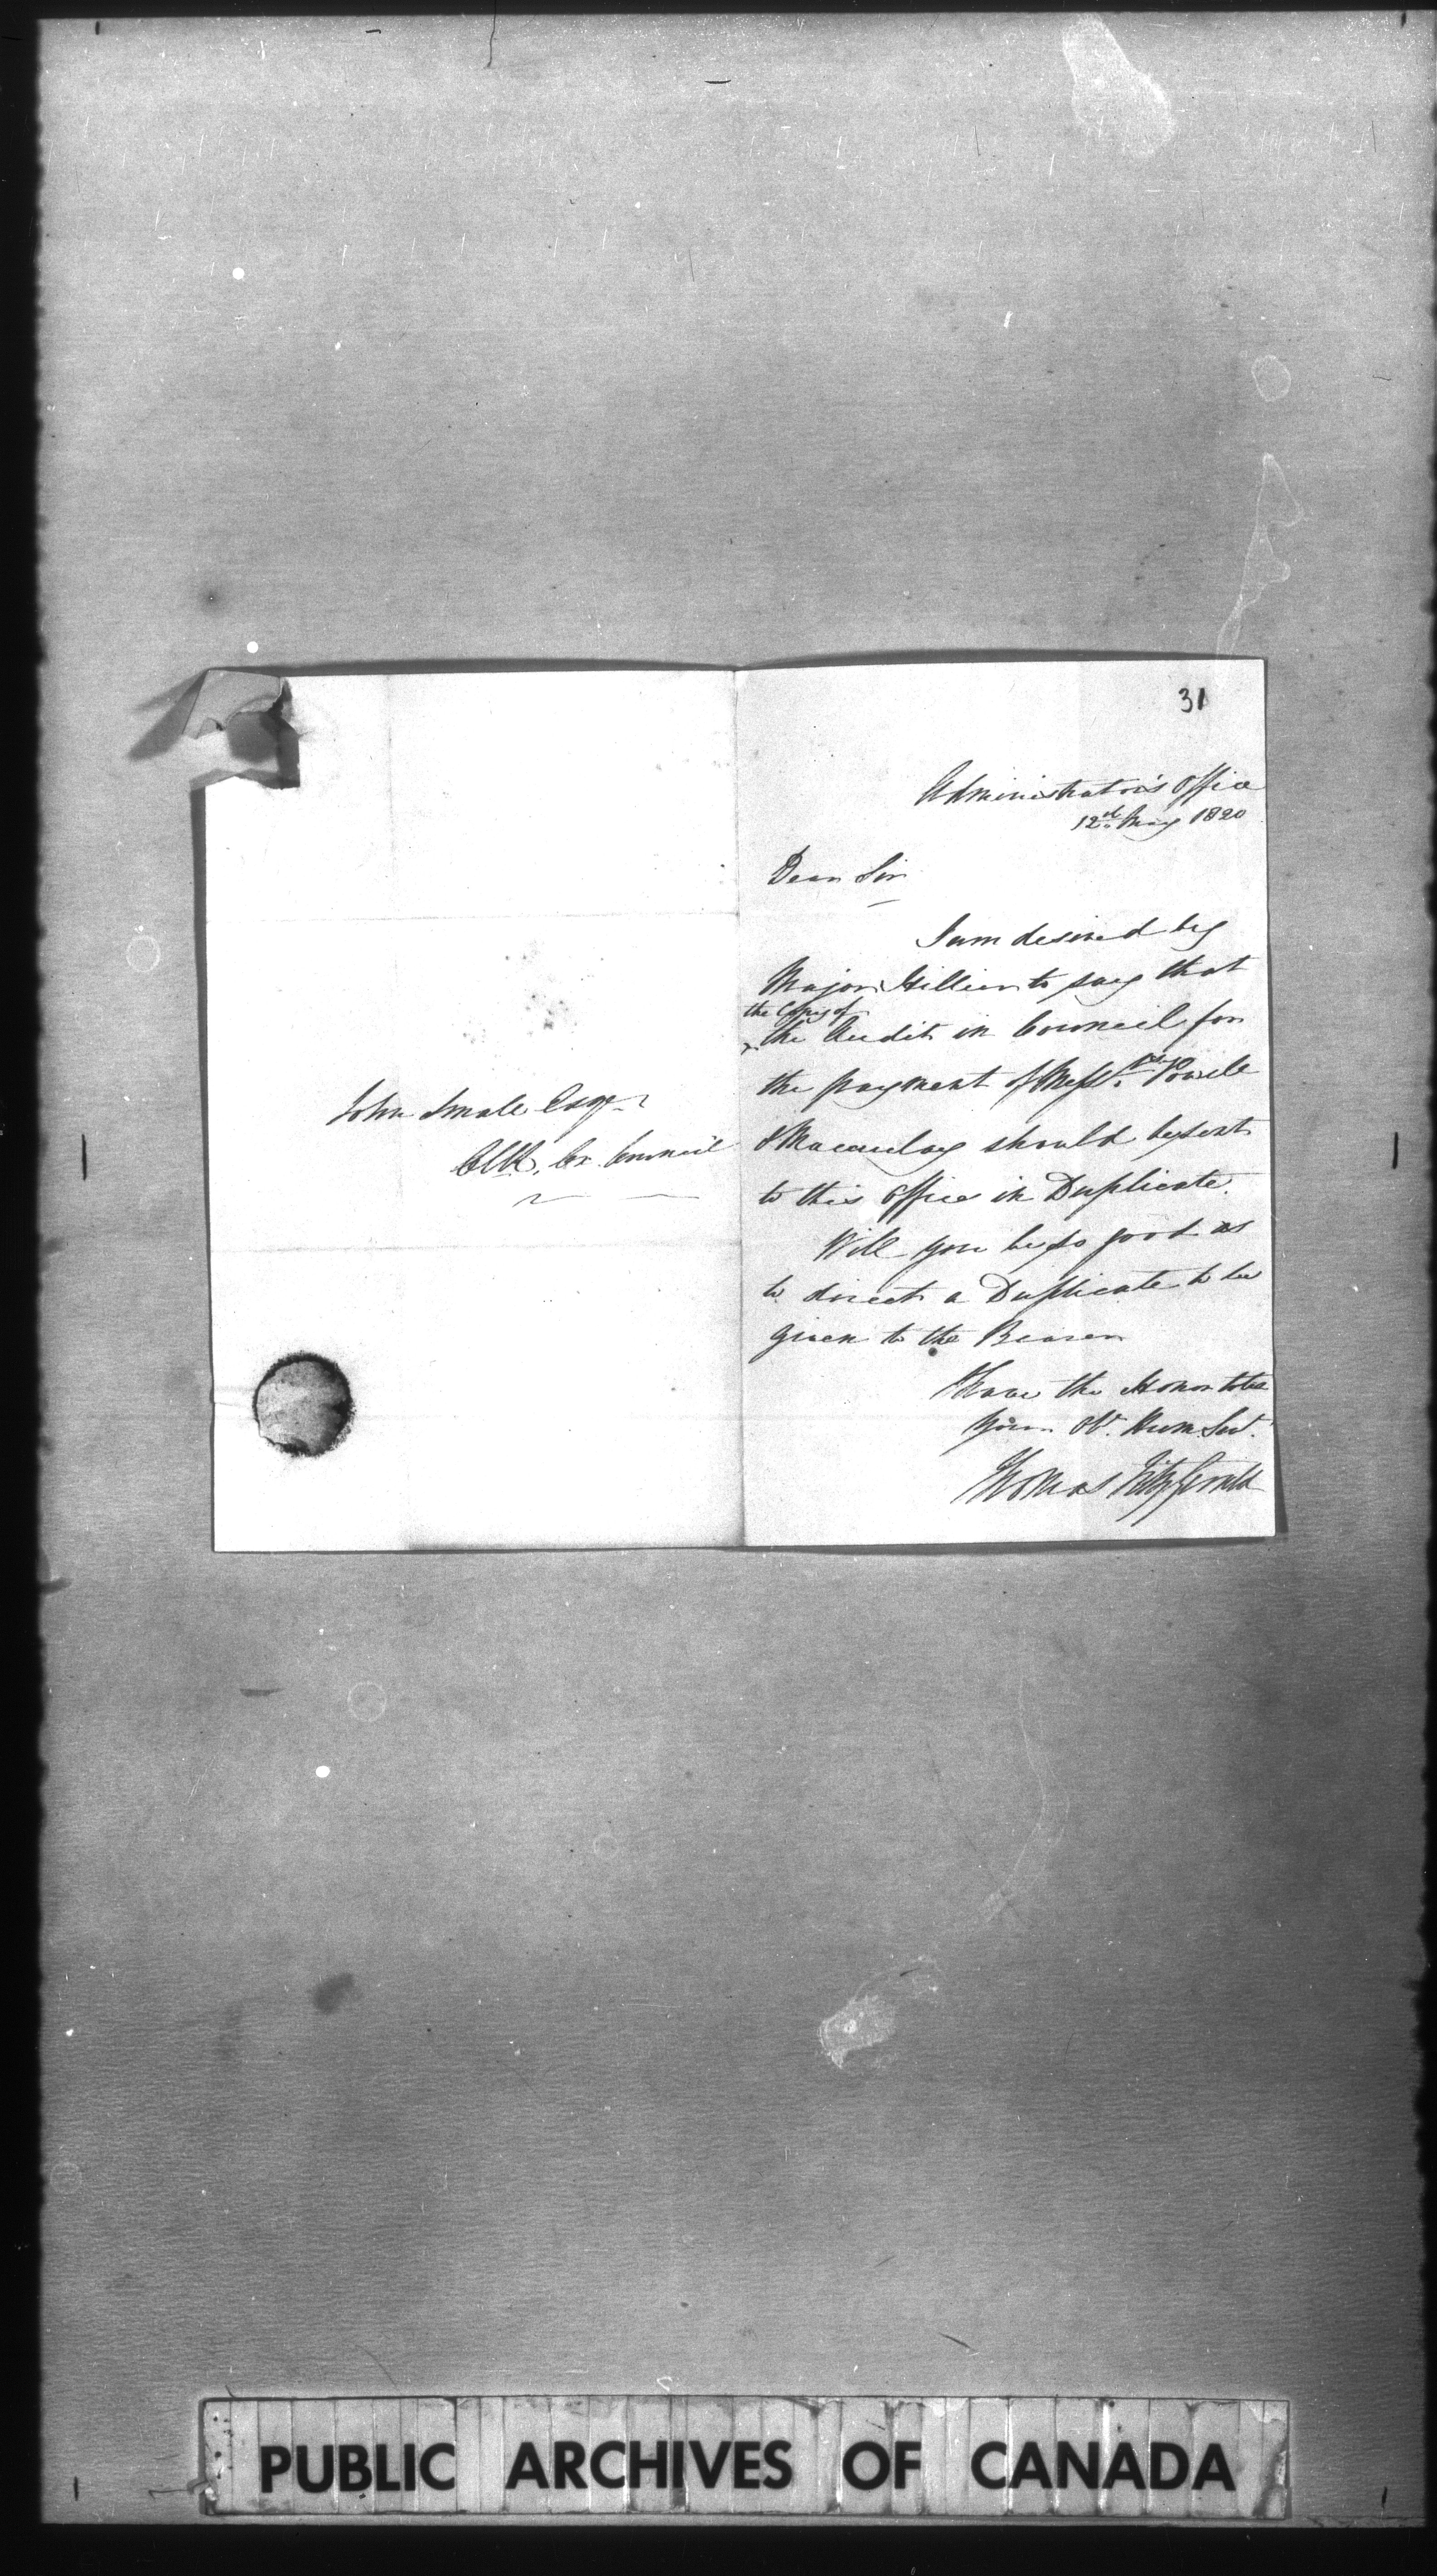 31
Administrator's Office
12th May 1820
Dear Sir
I am desired by
Major Hillier to say that
the Copy of
the Audit in Council for
the payment of Messrs. Powell
& Macaulay should be sent
to this Office in Duplicate.
Will you be so good as
to direct a Duplicate to be
given to the Bearer
I have the Honor to be
Your Obt. Hum Sert.
Thomas FitzGerald
John Small Esqr
Clk. Ex. Council
PUBLIC ARCHIVES OF CANADA